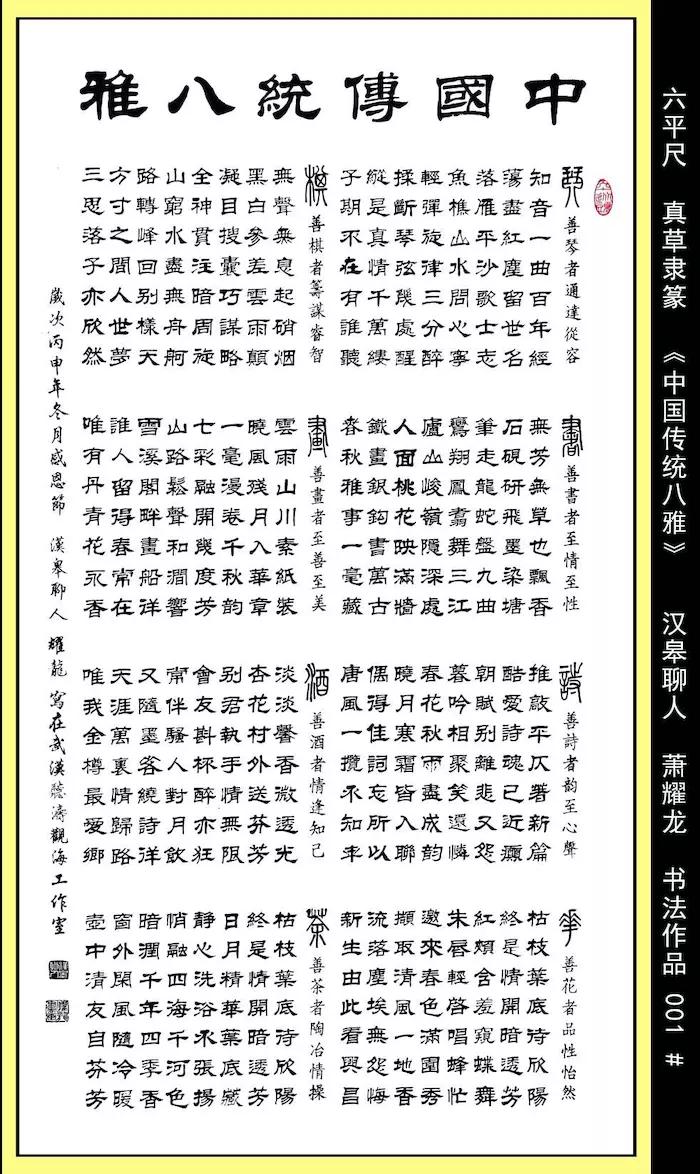 中國傳統八雅
琴
善琴者通達從容
知音一曲百年經
蕩盡紅塵留世名
落雁平沙歌士志
魚樵山水問心寧
輕彈旋律三分醉
揉斷琴弦幾處醒
縱是真情千萬縷
子期不在有誰聽
棋
善棋者籌謀睿智
無聲無息起硝烟
黑白參差雲雨顛
凝目搜囊巧謀略
全神貫注暗周旋
山窮水盡無舟舸
路轉峰回别樣天
方寸之間人世夢
三思落子亦欣然
書
善書者至情至性
無芳無草也飄香
石硯研飛墨染塘
筆走龍蛇盤九曲
鸞翔鳳翥舞三江
廬山峻嶺隱深處
人面桃花映滿牆
鐵畫銀鈎書萬古
春秋雅事一毫藏
畫
善畫者至善至美
雲雨山川素紙裝
曉風殘月入華章
一毫漫卷千秋韵
七彩融開幾度芳
山路鬆聲和澗響
雪溪閣畔畫船洋
誰人留得春常在
唯有丹青花永香
詩
善詩者韵至心聲
推敲平仄著新篇
酷愛詩魂已近癲
朝賦别離悲又怨
暮吟相聚笑還憐
春花秋雨盡成韵
曉月寒霜皆入聯
偶得佳詞忘所以
唐風一攬不知年
酒
善酒者情逢知己
淡淡馨香微透光
杏花村外送芬芳
别君執手情無限
會友斟杯醉亦狂
常伴騷人對月飲
又隨墨客繞詩洋
天涯萬裏情歸路
唯我金樽最愛鄉
花
善花者品性怡然
枯枝葉底待欣陽
終是情開暗透芳
紅頰含羞窺蝶舞
朱唇輕啓唱蜂忙
邀來春色滿園秀
擷取清風一地香
流落塵埃無怨悔
新生由此看興昌
茶
善茶者陶冶情操
枯枝葉底待欣陽
終是情開暗透芳
日月精華葉底藏
靜心洗浴不張揚
悄融四海千河色
暗潤千年四季香
窗外閑風隨冷暖
壺中清友自芬芳
歲次丙申年冬月感恩節 漢皋聊人 耀龍 寫在武漢聽濤觀海工作室
六平尺 真草隶篆 《中国传统八雅》 汉皋聊人 萧耀龙 书法作品 001 #